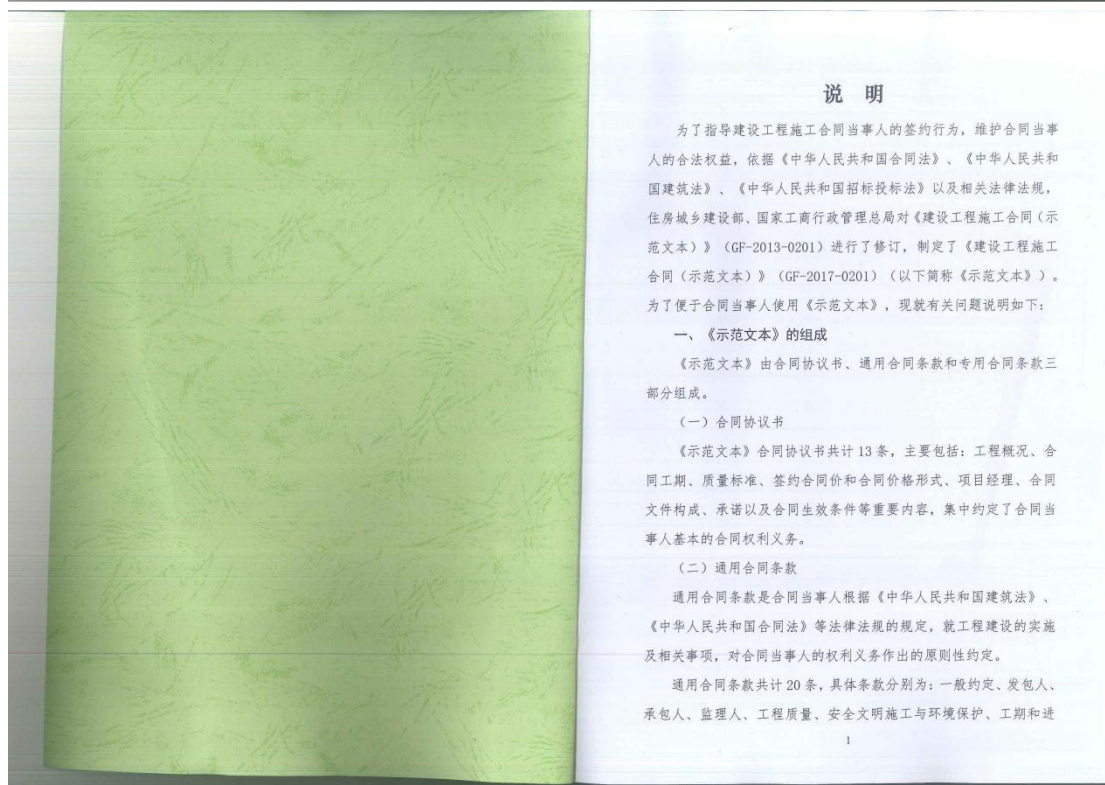 说 明
为了指导建设工程施工合同当事人的签约行为，维护合同当事
人的合法权益，依据《中华人民共和国合同法》、《中华人民共和
国建筑法》、《中华人民共和国招标投标法》以及相关法律法规，
住房城乡建设部、国家工商行政管理总局对《建设工程施工合同（示
范文本）》（GF-2013-0201）进行了修订，制定了《建设工程施工
合同（示范文本）》（GF-2017-0201）（以下简称《示范文本》）。
为了便于合同当事人使用《示范文本》，现就有关问题说明如下：
一、《示范文本》的组成
《示范文本》由合同协议书、通用合同条款和专用合同条款三
部分组成。
（一）合同协议书
《示范文本》合同协议书共计 13 条，主要包括：工程概况、合
同工期、质量标准、签约合同价和合同价格形式、项目经理、合同
文件构成、承诺以及合同生效条件等重要内容，集中约定了合同当
事人基本的合同权利义务。
（二）通用合同条款
通用合同条款是合同当事人根据《中华人民共和国建筑法》、
《中华人民共和国合同法》等法律法规的规定，就工程建设的实施
及相关事项，对合同当事人的权利义务作出的原则性约定。
通用合同条款共计 20 条，具体条款分别为：一般约定、发包人、
承包人、监理人、工程质量、安全文明施工与环境保护、工期和进
1